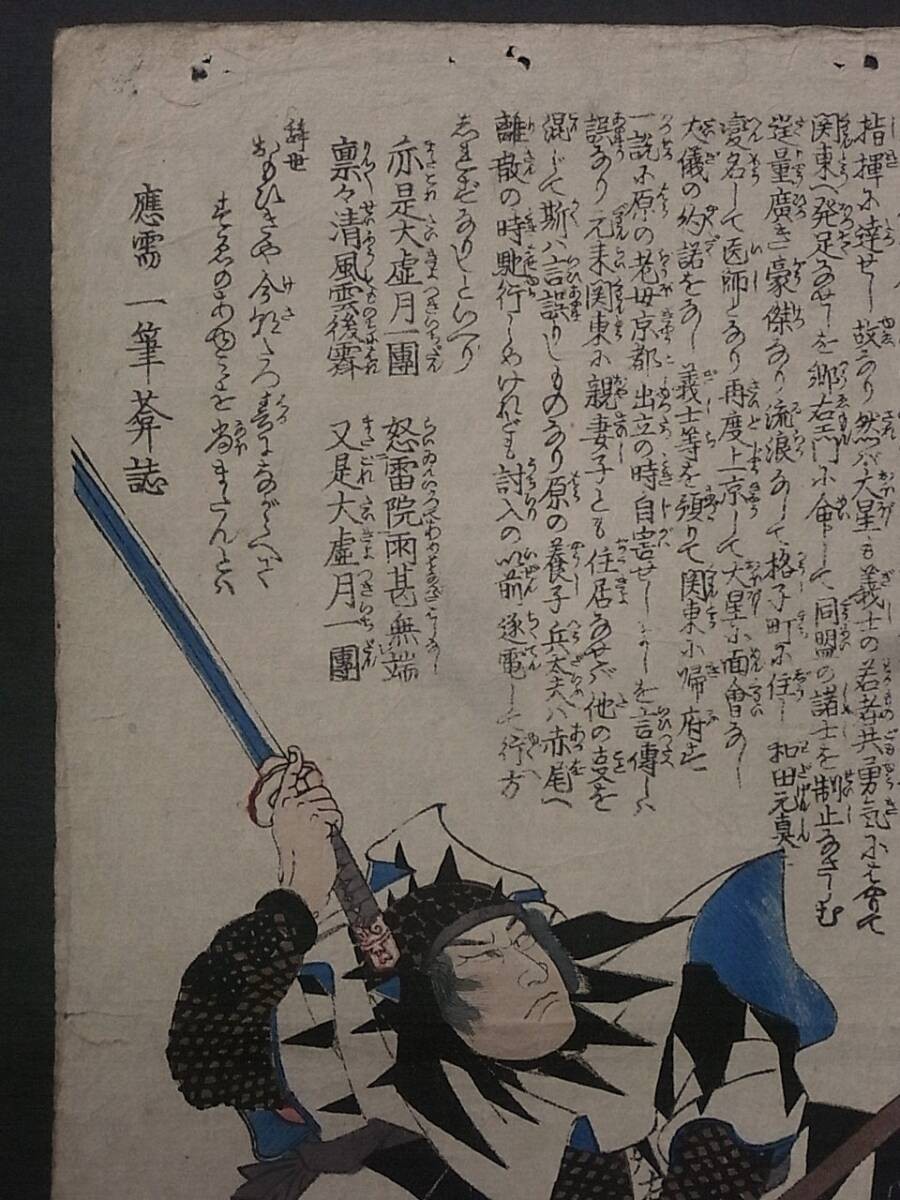 指揮に達せし故なり然バ大星も義士の若者共勇気にはやりて
関東へ発足なせしを郷右エ門に命じて同盟の諸士を制止なさしむ
定量廣き豪傑なり流浪なして格子町に住し和田元真と
変名して医師となり再度上京して大星に面會なし
大儀の約諾をなし義士等を預りて関東に帰府す
一説に原の老母京都出立の時自害せしよしを言傳しハ
誤なり元来関東に親妻子とも住居なせバ他の支を
混じて斯ハ言誤りしものなり原の養子兵太夫ハ赤尾へ
離散の時馳行しめけれども討入の以前逐電して行方
しれずなりしといへり
亦是大虚月一團 怒雷院雨甚無端
禀々清風雲後霽 又是大虚月一團
辞世
おもひきや今朝たつ春にながらへて
すゑのあゆミを尚またんとハ
應需 一筆葊誌